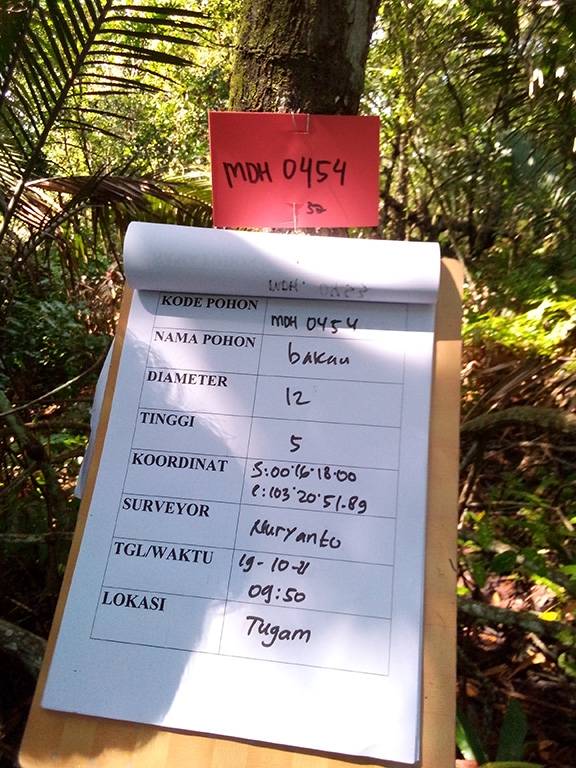 MDH 0454
32
KODE POHON MDH 0454
NAMA POHON bakau
DIAMETER 12
TINGGI 5
KOORDINAT S:00°16'18.00
E:103°20'51.89
SURVEYOR Nuryanto
TGL/WAKTU 19-10-21
09:50
LOKASI Tugam